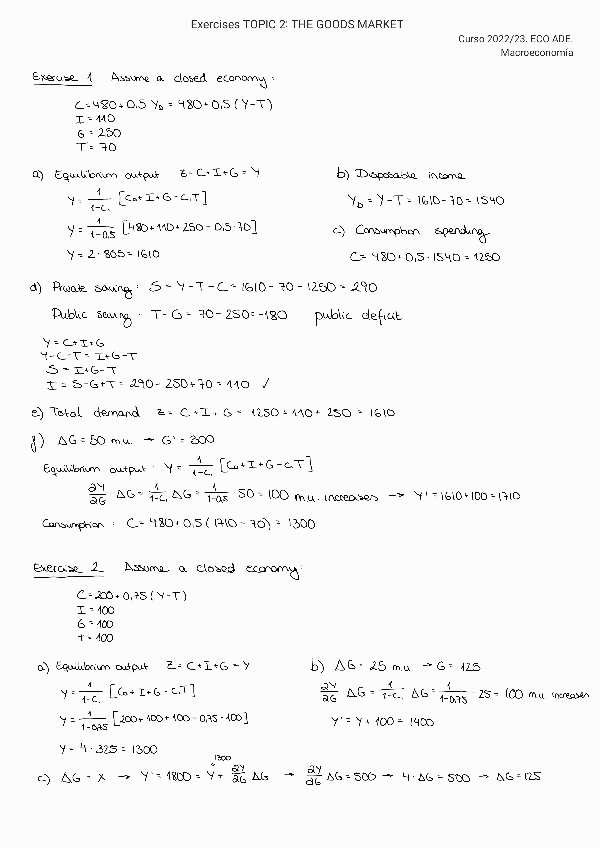 Exercises TOPIC 2: THE GOODS MARKET
Curso 2022/23. ECO ADE.
Macroeconomía
Exercise 1 Assume a closed economy:
C = 480 + 0,5 Y_D = 480 + 0,5 (Y-T)
I = 110
G = 250
T = 70
a) Equilibrium output Z = C + I + G = Y
Y = 1/(1-c₁) [C₀ + I + G - c₁T]
Y = 1/(1-0,5) [480 + 110 + 250 - 0,5·70]
Y = 2 · 805 = 1610
b) Disposable income
Y_D = Y - T = 1610 - 70 = 1540
c) Consumption spending
C = 480 + 0,5 · 1540 = 1250
d) Private saving: S = Y - T - C = 1610 - 70 - 1250 = 290
Public saving: T - G = 70 - 250 = -180 public deficit
Y = C + I + G
Y - C - T = I + G - T
S = I + G - T
I = S - G + T = 290 - 250 + 70 = 110 ✓
e) Total demand Z = C + I + G = 1250 + 110 + 250 = 1610
f) ΔG = 50 m.u. → G' = 300
Equilibrium output: Y = 1/(1-c₁) [C₀ + I + G - c₁T]
∂Y/∂G · ΔG = 1/(1-c₁) ΔG = 1/(1-0,5) · 50 = 100 m.u. increases → Y' = 1610 + 100 = 1710
Consumption: C = 480 + 0,5 (1710 - 70) = 1300
Exercise 2 Assume a closed economy:
C = 200 + 0,75 (Y-T)
I = 100
G = 100
T = 100
a) Equilibrium output Z = C + I + G = Y
Y = 1/(1-c₁) [C₀ + I + G - c₁T]
Y = 1/(1-0,75) [200 + 100 + 100 - 0,75 · 100]
Y = 4 · 325 = 1300
b) ΔG = 25 m.u → G = 125
∂Y/∂G ΔG = 1/(1-c₁) ΔG = 1/(1-0,75) · 25 = 100 m.u. increases
Y' = Y + 100 = 1400
1300
c) ΔG = X → Y' = 1800 = Y + ∂Y/∂G ΔG → ∂Y/∂G ΔG = 500 → 4 · ΔG = 500 → ΔG = 125